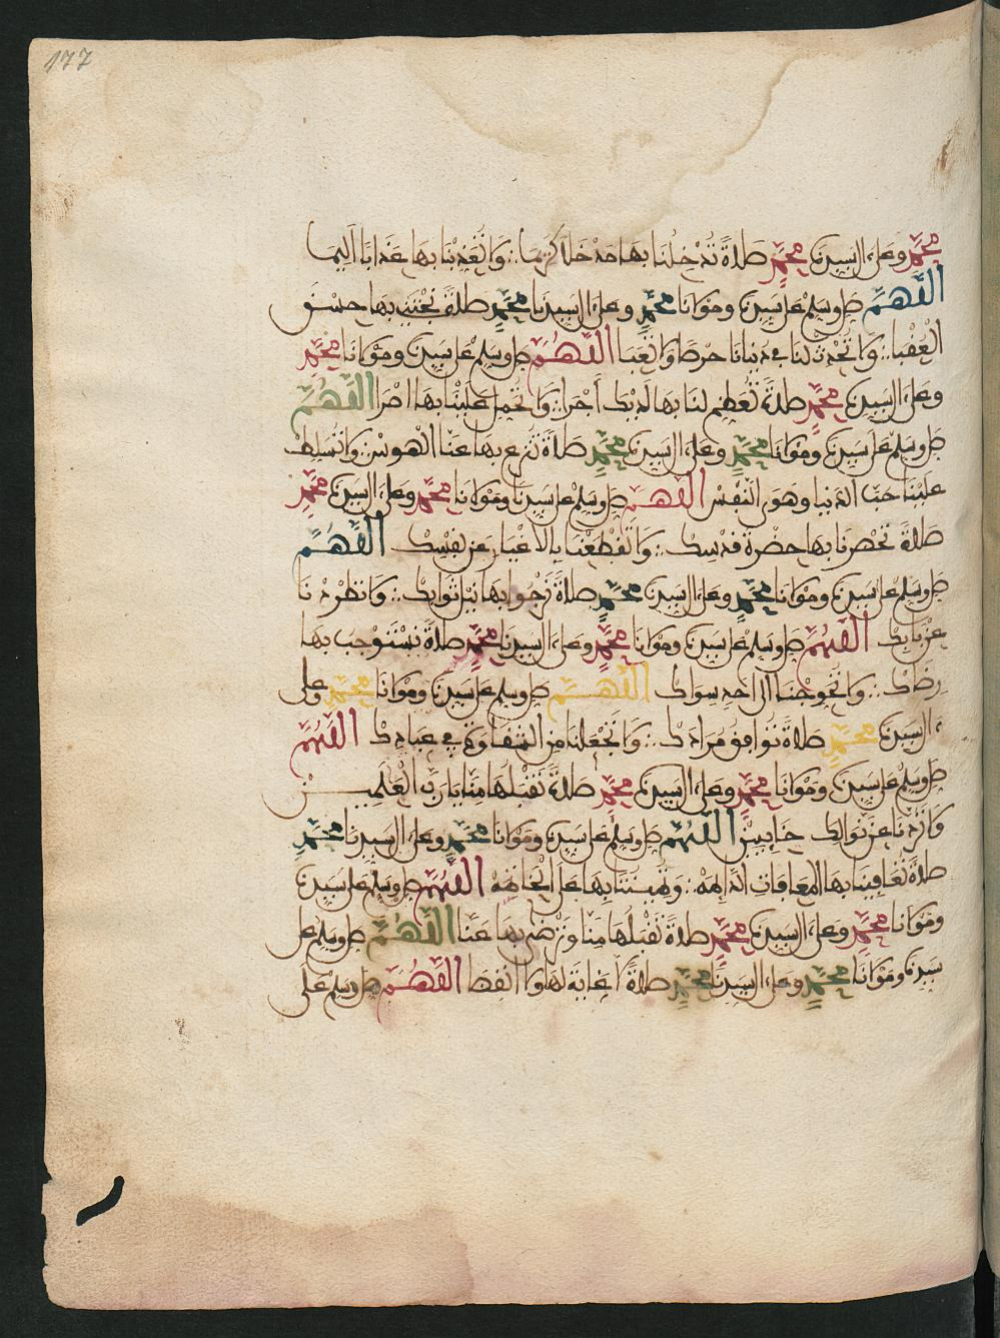 177
محمد وعلى ءال سيدنا محمد صلاة تدخلنا بها مدخلا كريما ∴ ولا تعذبنا بها عذابا اليما
اللهم صل وسلم على سيدنا ومولانا محمد وعلى ءال سيدنا محمد صلاة تجتبى بها حسن
العقبا ∴ ولا تحدث لنا في دنيانا حرصا ولا تعبا اللهم صل وسلم على سيدنا ومولانا محمد
وعلى ءال سيدنا محمد صلاة تعظم لنا بها لديك أجرا ∴ ولا تحمل علينا بها اصرا اللهم
صل وسلم على سيدنا ومولانا محمد وعلى ءال سيدنا محمد صلاة تنزع بها عنا الهوس ∴ ولا تسلط
علينا حب الدنيا وهوى النفس اللهم صل وسلم على سيدنا ومولانا محمد وعلى ءال سيدنا محمد
صلاة تحضرنا بها حضرة قدسك ∴ ولا تقطعنا بالاغيار عن نفسك اللهم
صل وسلم على سيدنا ومولانا محمد وعلى ءال سيدنا محمد صلاة نرجوا بها نيل ثوابك ∴ ولا تطردنا
عن بابك اللهم صل وسلم على سيدنا ومولانا محمد وعلى ءال سيدنا محمد صلاة نستوجب بها
رضاك ∴ ولا تحوجنا الى احد سواك اللهم صل وسلم على سيدنا ومولانا محمد وعلى
ءال سيدنا محمد صلاة توافق مرادك ∴ ولا تجعلنا من الشقاوة في عبادك اللهم
صل وسلم على سيدنا ومولانا محمد وعلى ءال سيدنا محمد صلاة تقبلها منا يا رب العلمين
ولا تردنا عن نوالك خايبين اللهم صل وسلم على سيدنا ومولانا محمد وعلى ءال سيدنا محمد
صلاة تعافينا بها المعافات الدايمة ∴ وتميتنا بها على الخاتمة اللهم صل وسلم على سيدنا
ومولانا محمد وعلى ءال سيدنا محمد صلاة تقبلها منا وترضى بها عنا اللهم صل وسلم على
سيدنا ومولانا محمد وعلى ءال سيدنا محمد صلاة لا غاية لها ولا انقضا اللهم صل وسلم على